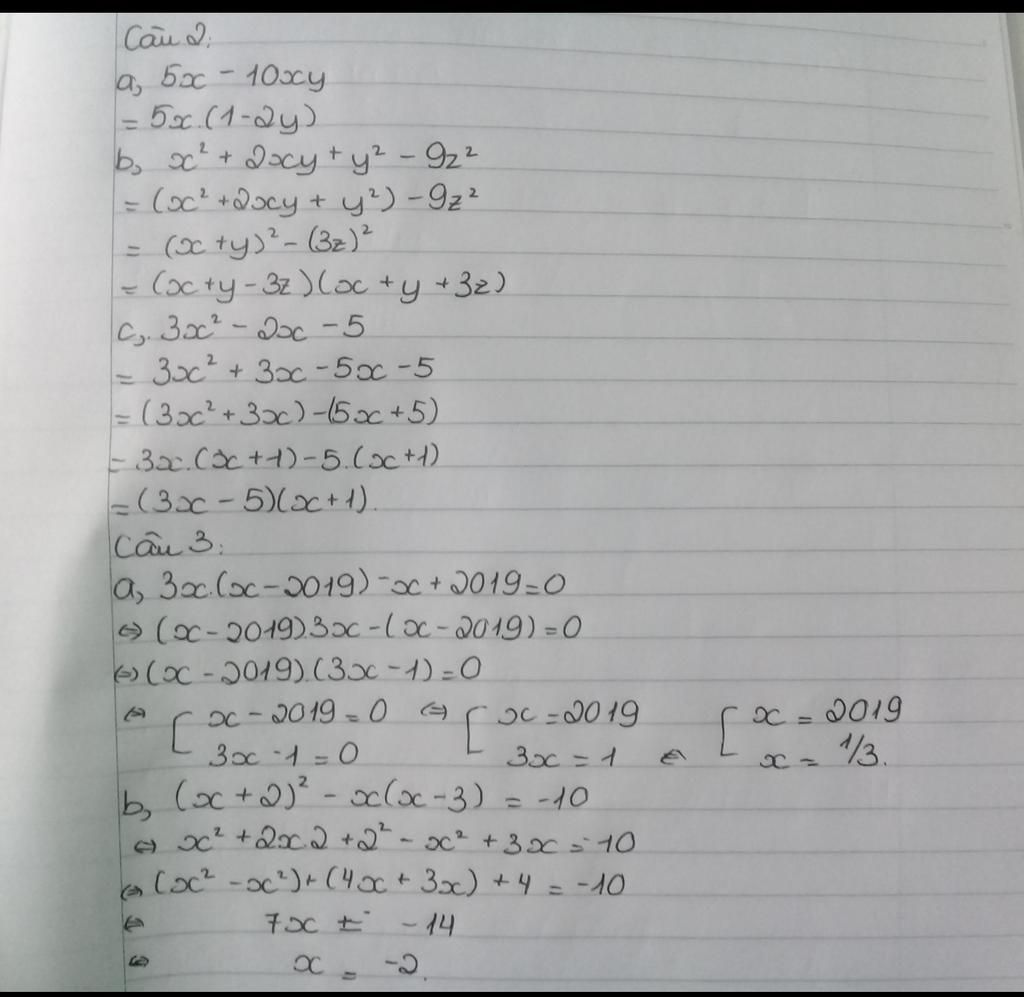 Câu 2:
a, 5x - 10xy
= 5x.(1-2y)
b, x² + 2xy + y² - 9z²
= (x² + 2xy + y²) - 9z²
= (x + y)² - (3z)²
= (x + y - 3z)(x + y + 3z)
c, 3x² - 2x - 5
= 3x² + 3x - 5x - 5
= (3x² + 3x) - (5x + 5)
= 3x.(x + 1) - 5.(x + 1)
= (3x - 5)(x + 1).
Câu 3:
a, 3x.(x - 2019) - x + 2019 = 0
⇔ (x - 2019).3x - (x - 2019) = 0
⇔ (x - 2019).(3x - 1) = 0
⇔ [ x - 2019 = 0 ⇔ [ x = 2019 [ x = 2019
3x - 1 = 0 3x = 1 ⇔ x = 1/3.
b, (x + 2)² - x(x - 3) = -10
⇔ x² + 2x.2 + 2² - x² + 3x = -10
⇔ (x² - x²) + (4x + 3x) + 4 = -10
⇔ 7x = -14
⇔ x = -2.